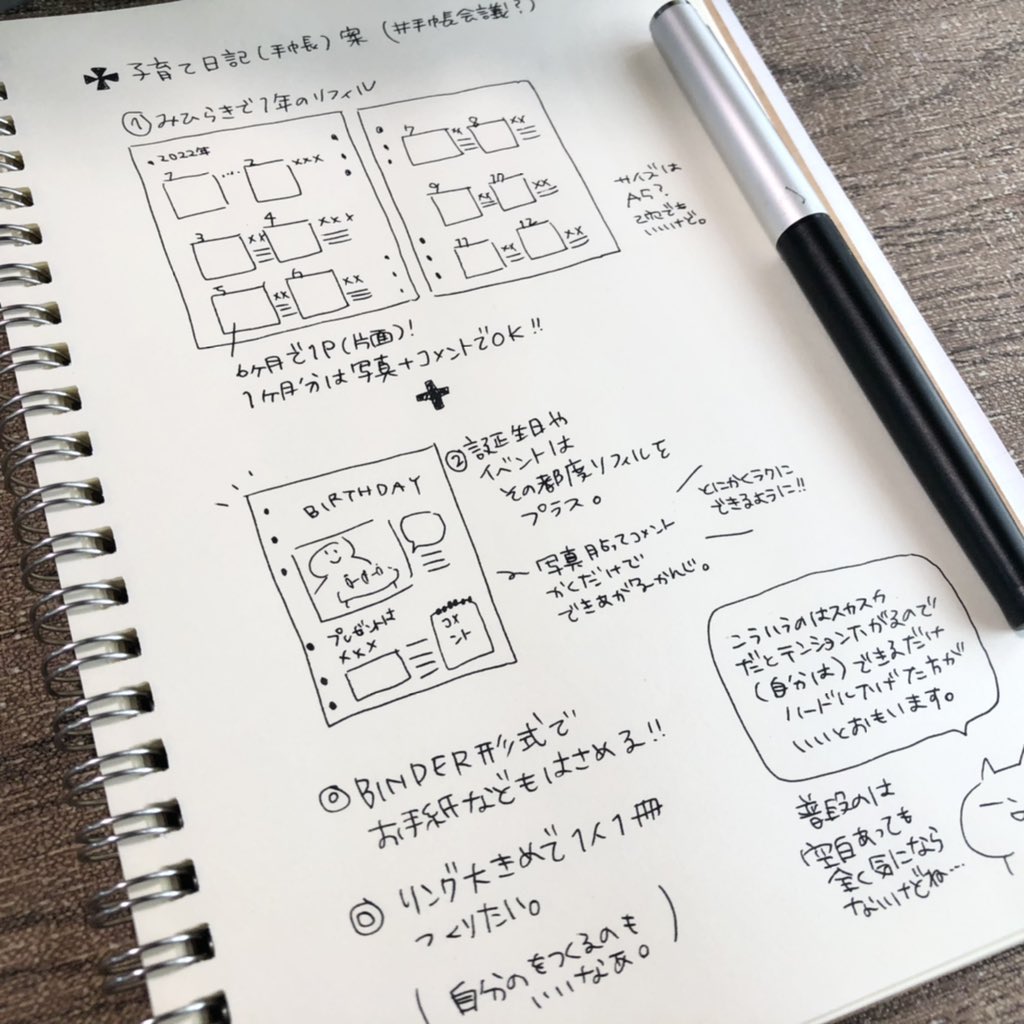 子育て日記(手帳)案 (#手帳会議?)
①みひらきで1年のリフィル
2022年
1
2
xxx
3
xx
4
xxx
5
xx
6
xx
7
xx
8
xx
9
xx
10
xx
11
xx
12
xx
サイズは
A5?
2穴でも
いいけど。
6ヶ月で1P(片面)!
1ヶ月分は写真+コメントでOK!!
+
②誕生日や
イベントは
その都度リフィルを
プラス。
BIRTHDAY
プレゼントは
xxx
コメ
ント
とにかくラクに
できるように!!
写真貼ってコメント
かくだけで
できあがるかんじ。
こういうのはスカスカ
だとテンション下がるので
(自分は)できるだけ
ハードル下げた方が
いいとおもいます。
普段のは
空白あっても
全く気になら
ないけどね…
◎BINDER形式で
お手紙などもはさめる!!
◎リング大きめで1人1冊
つくりたい。
(自分のをつくるのも
いいなぁ。)